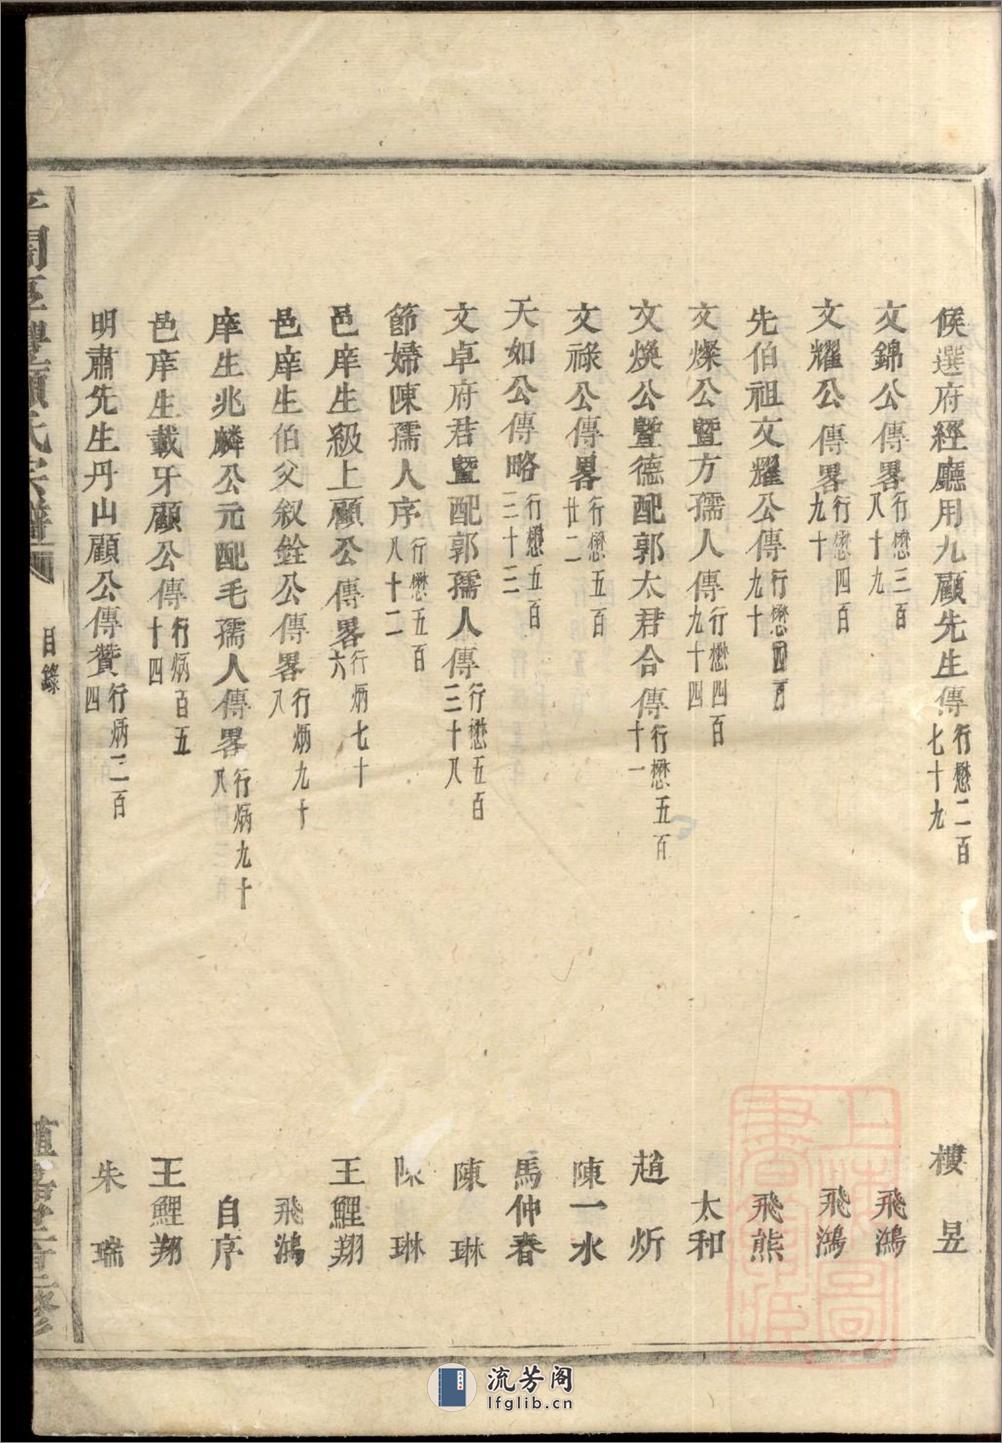 候選府經廳用九顧先生傳行懋二百七十九 樓昱
文錦公傳畧行懋三百八十九 飛鴻
文耀公傳畧行懋四百九十 飛鴻
先伯祖文耀公傳行懋四百九十 飛熊
文燦公暨方孺人傳行懋四百九十四 太和
文煥公暨德配郭太君合傳行懋五百十一 趙炘
文祿公傳畧行懋五百廿二 陳一水
天如公傳略行懋五百三十三 馬仲春
文卓府君暨配郭孺人傳行懋五百三十八 陳琳
節婦陳孺人序行懋五百八十二 陳琳
邑庠生級上顧公傳畧行炳七十六 王鯉翔
邑庠生伯父叙銓公傳畧行炳九十八 飛鴻
庠生兆麟公元配毛孺人傳畧行炳九十八 自序
邑庠生載牙顧公傳行炳百五十四 王鯉翔
明肅先生丹山顧公傳贊行炳二百四 朱瑞
顧氏宗譜
目錄
上海圖書館藏
流芳阁
lfglib.cn